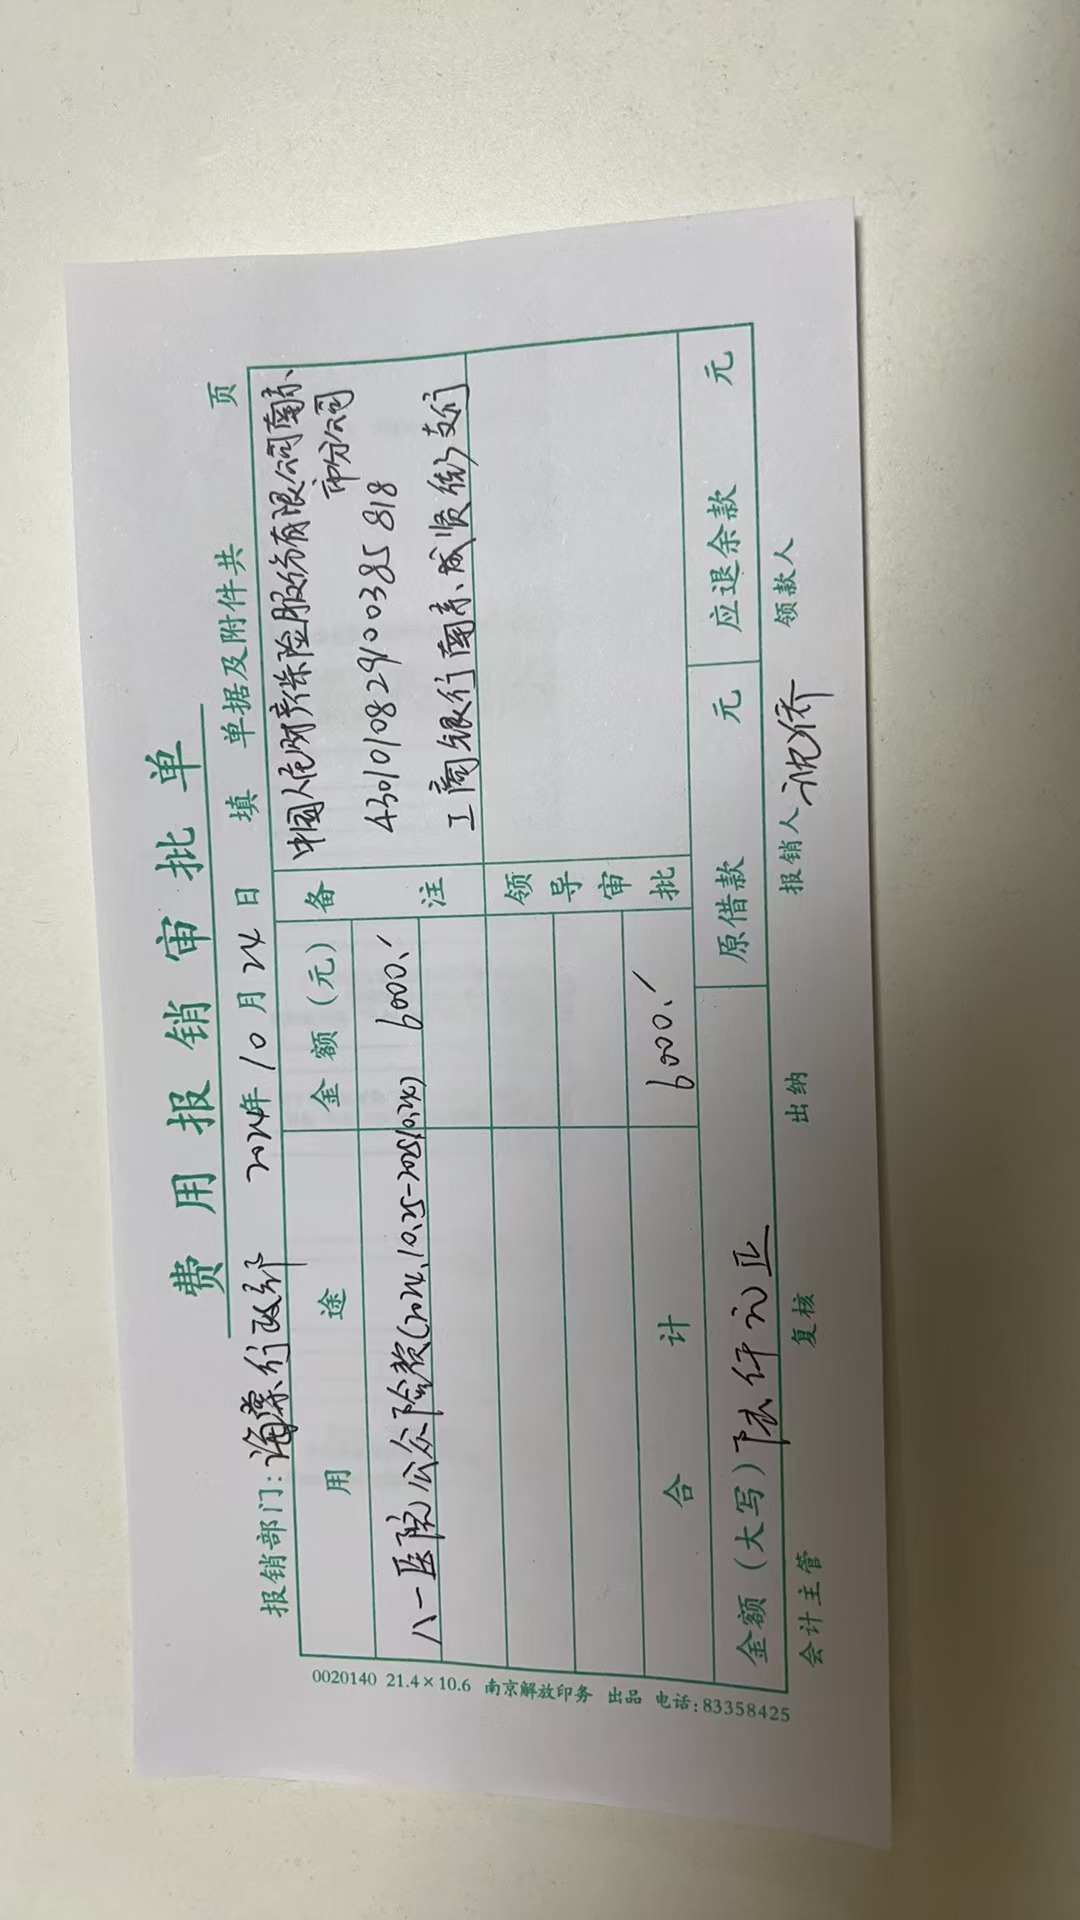 费用报销审批单
报销部门：海棠行政部 2024年10月24日 填 单据及附件共 页
用途 金额（元） 备注 中国人民财产保险股份有限公司南京市分公司
八一医院公众险费（2024.10.25-2025.10.24） 6000.- 4301010829100385818
工商银行南京成贤街支行
领导审批
合计 6000.-
金额（大写）陆仟元正 原借款 元 应退余款 元
会计主管 复核 出纳 报销人 沈侨 领款人
0020140 21.4×10.6 南京解放印务 出品 电话：83358425